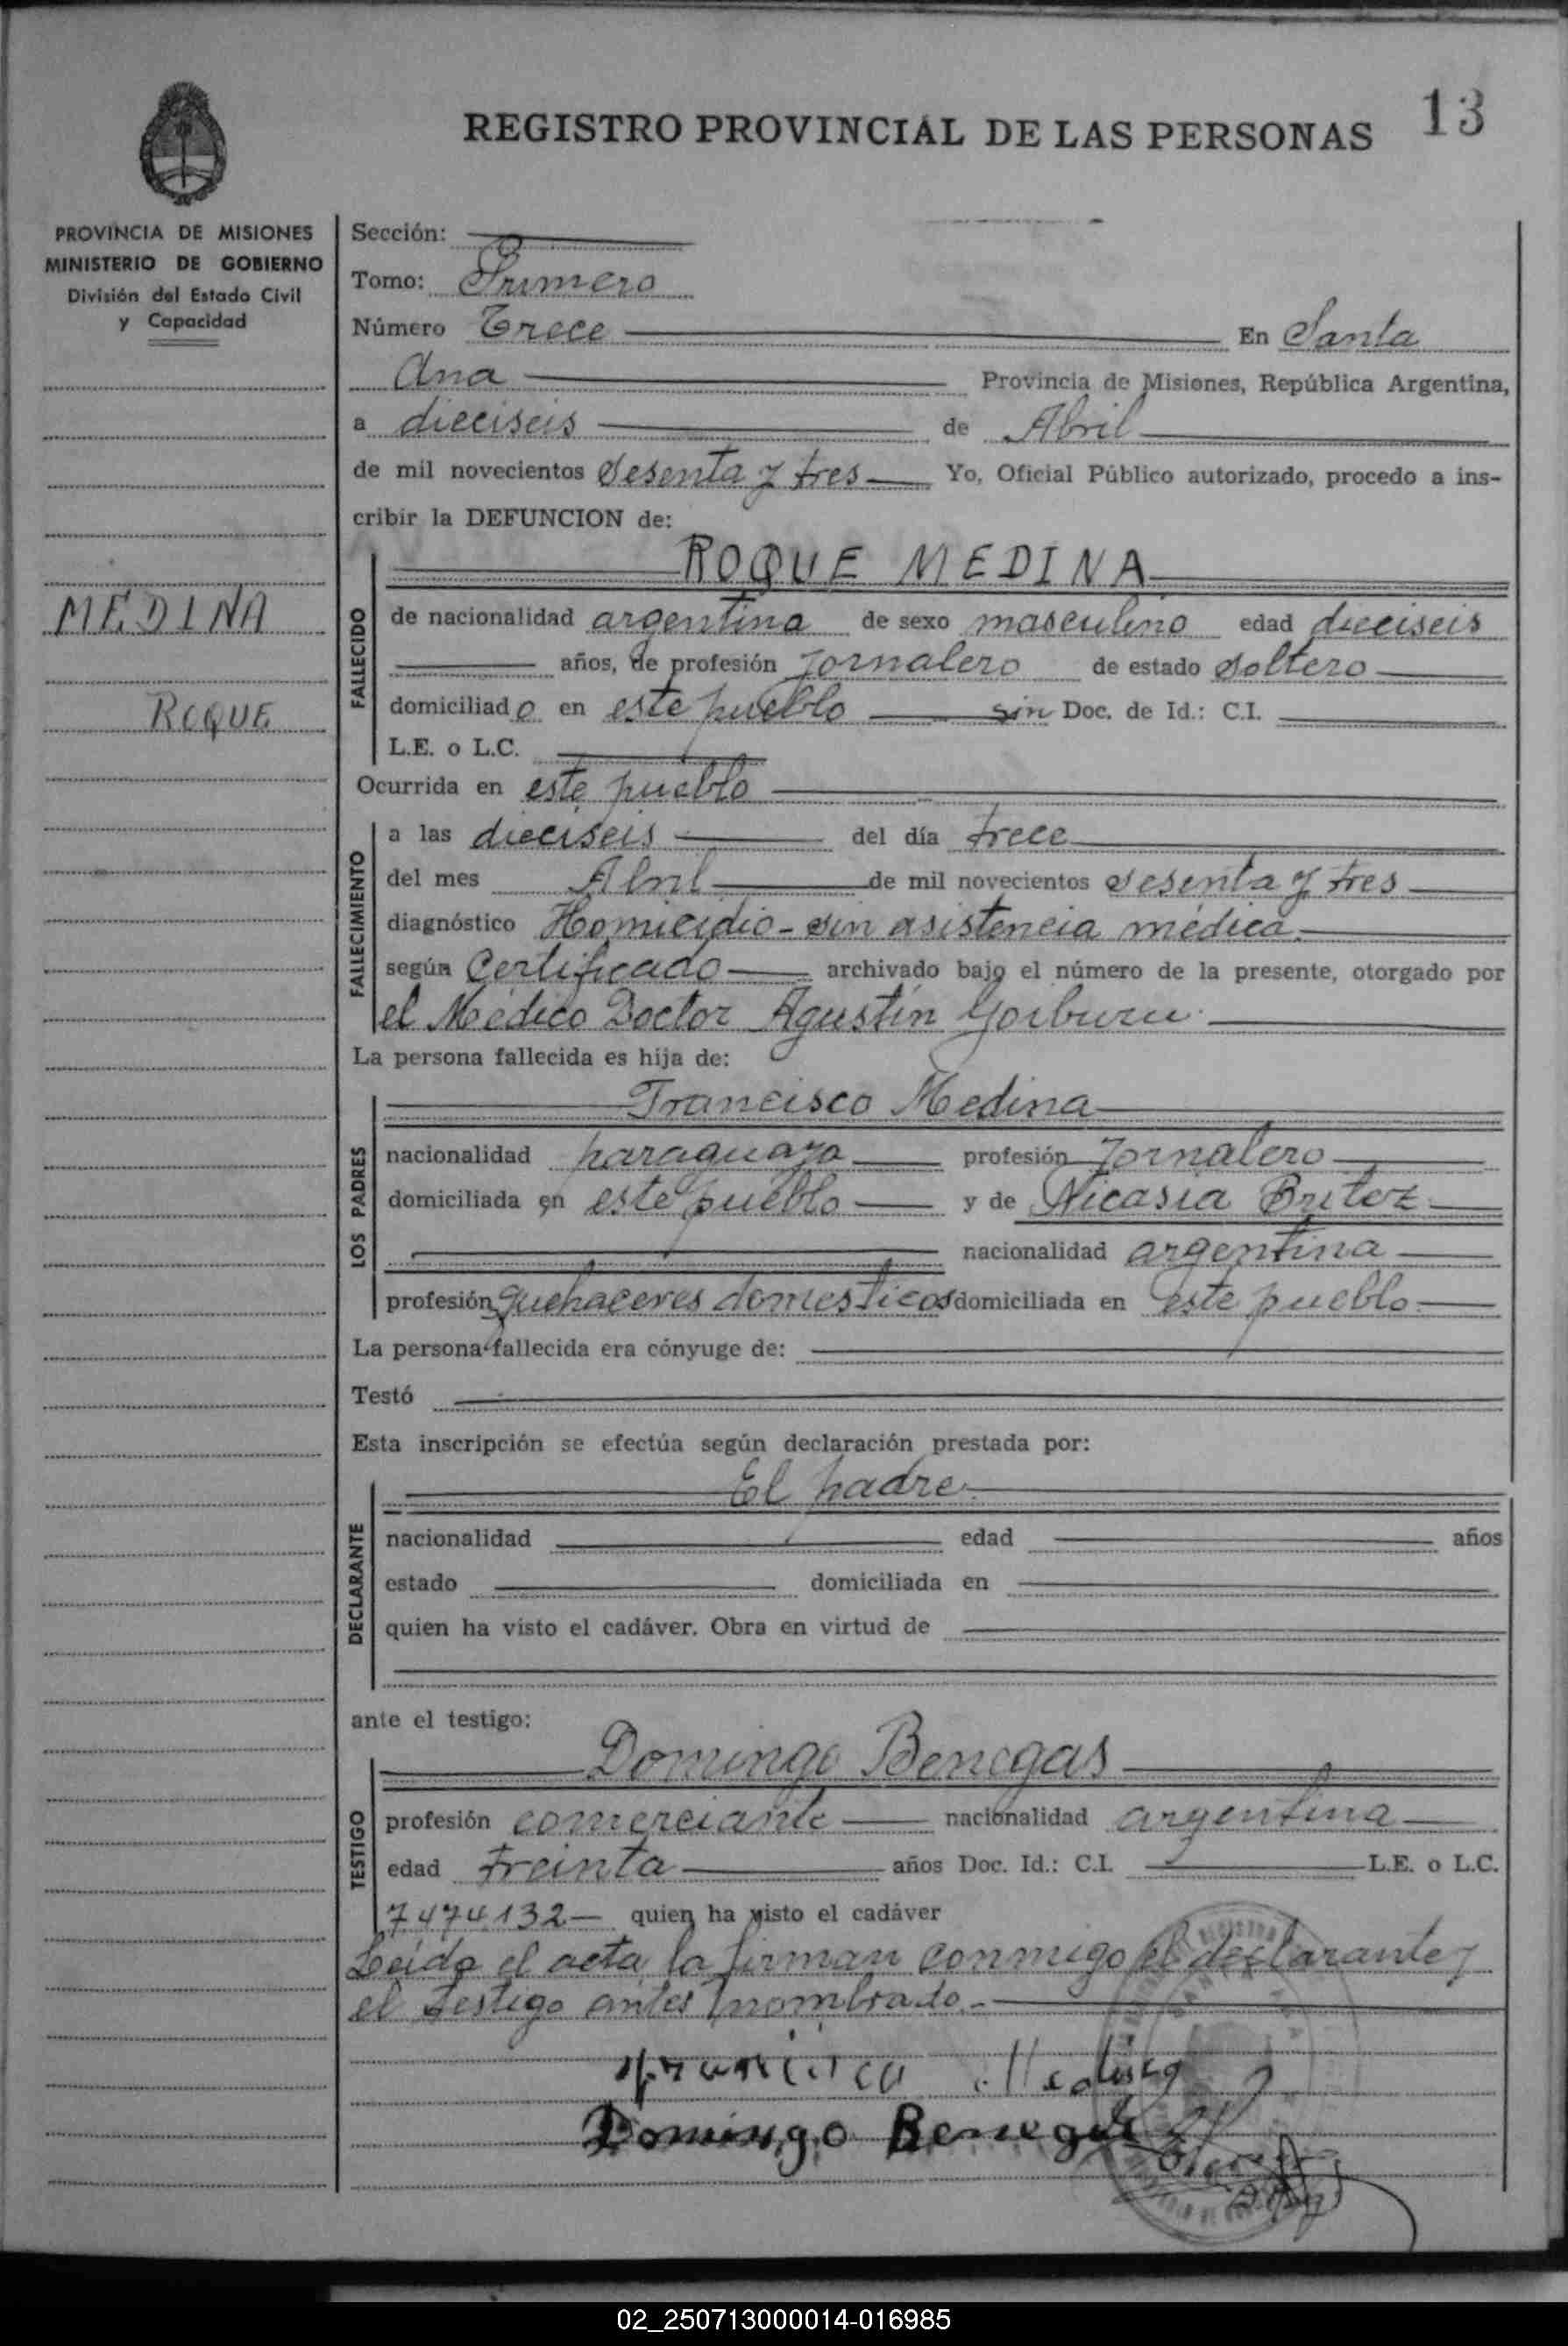 REGISTRO PROVINCIAL DE LAS PERSONAS 13
PROVINCIA DE MISIONES
MINISTERIO DE GOBIERNO
División del Estado Civil
y Capacidad
MEDINA
ROQUE
Sección:
Tomo: Primero
Número Trece En Santa
Ana Provincia de Misiones, República Argentina,
a dieciseis de Abril
de mil novecientos Sesenta y tres Yo, Oficial Público autorizado, procedo a ins-
cribir la DEFUNCION de:
ROQUE MEDINA
FALLECIDO
de nacionalidad argentina de sexo masculino edad dieciseis
años, de profesión Jornalero de estado Soltero
domiciliado en este pueblo sin Doc. de Id.: C.I.
L.E. o L.C.
Ocurrida en este pueblo
FALLECIMIENTO
a las dieciseis del día trece
del mes Abril de mil novecientos Sesenta y tres
diagnóstico Homicidio - sin asistencia médica.
según Certificado archivado bajo el número de la presente, otorgado por
el Médico Doctor Agustín
La persona fallecida es hija de:
LOS PADRES
Francisco Medina
nacionalidad paraguaya profesión Jornalero
domiciliada en este pueblo y de Nicasia Britez
nacionalidad argentina
profesión quehaceres domesticos domiciliada en este pueblo
La persona fallecida era cónyuge de:
Testó
Esta inscripción se efectúa según declaración prestada por:
DECLARANTE
El padre
nacionalidad edad años
estado domiciliada en
quien ha visto el cadáver. Obra en virtud de
ante el testigo:
TESTIGO
Domingo Benegas
profesión comerciante nacionalidad argentina
edad treinta años Doc. Id.: C.I. L.E. o L.C.
7474132 quien ha visto el cadáver
Leída el acta la firman conmigo el declarante y
el testigo antes nombrado.-
Francisco Medina
Domingo Benegas
02_250713000014-016985